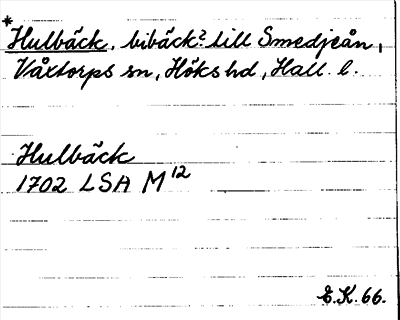 *
Hulbäck, bibäck? till Smedjeån,
Våxtorps sn, Höks hd, Hall. l.
Hulbäck
1702 LSA M 12
E.K. 66.